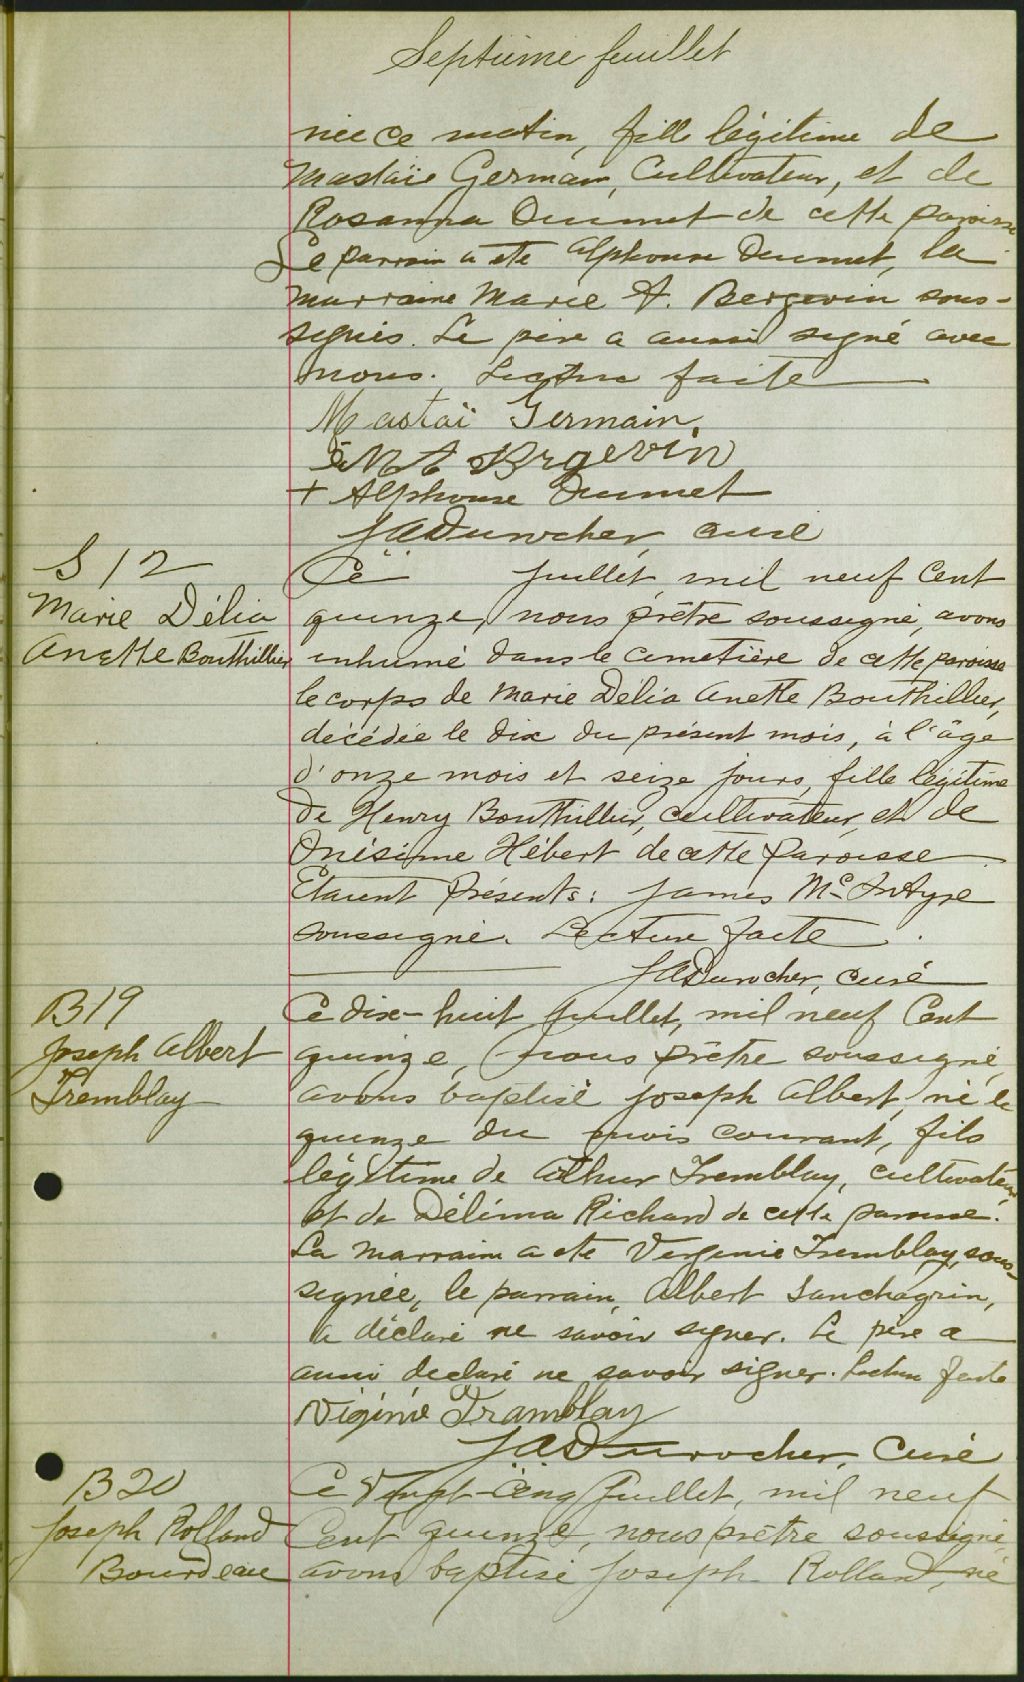 Septième feuillet
née ce matin, fille légitime de
Mastaïe Germain, Cultivateur, et de
Rosanna Oumet de cette paroisse
Le parrain a été Alphonse Oumet, la
marraine Marie A. Bergevin sous-
signés. Le père a aussi signé avec
nous. Lecture faite
Mastaï Germain
M A Brgevin
+ Alphonse Oumet
JADurocher, curé
S 12
Marie Délia
Anette Bouthillier
Ce juillet, mil neuf Cent
quinze, nous prêtre soussigné, avons
inhumé dans le cimetière de cette paroisse
le corps de Marie Délia Anette Bouthillier,
décédée le dix du présent mois, à l'âge
d'onze mois et seize jours, fille légitime
de Henry Bouthillier, cultivateur, et de
Onésime Hébert de cette paroisse
Etaient Présents: James McIntyre
soussigné. Lecture faite.
JADurocher, curé
B19
Joseph Albert
Tremblay
Ce dix-huit juillet, mil neuf Cent
quinze, nous prêtre soussigné,
avons baptisé Joseph Albert, né le
quinze du mois courant, fils
légitime de Athur Tremblay, cultivateur,
et de Délima Richard de cette paroisse.
La marraine a été Vergenie Tremblay, sous-
signée, le parrain, Albert Sanchagrin,
a déclaré ne savoir signer. Le père a
aussi declaré ne savoir signer. Lecture faite
Vigénie Tramblay
JADurocher, Curé
B20
Joseph Rolland
Bourdeau
Ce Vingt-Cinq Juillet, mil neuf
Cent quinze, nous prêtre soussigné,
avons baptisé Joseph Rolland, né